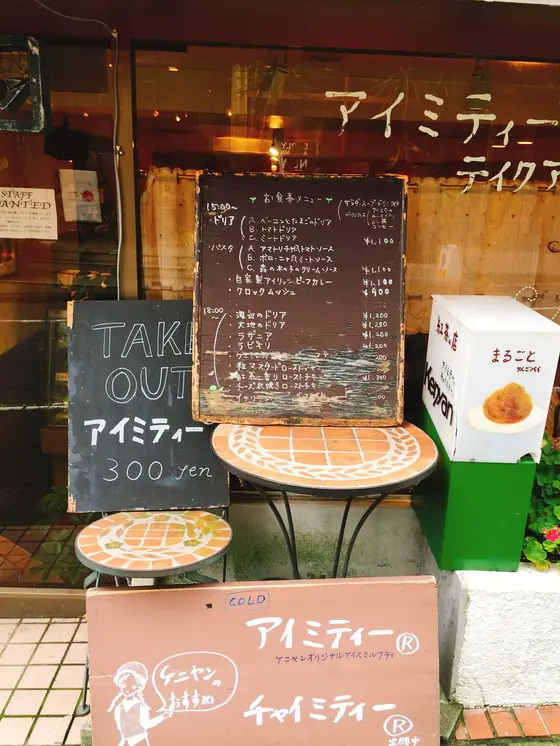 アイミティー
テイクア
STAFF
WANTED
お食事メニュー
サラダ・スープ・ドリンク付
15:00〜
・ドリア
A. ベーコンとたまごのドリア
B. トマトドリア
C. ミートドリア
¥1,100
・パスタ
A. アマトリチャ風トマトソース
B. ボローニャ風ミートソース
C. 森の木の子のクリームソース
¥1,100
・自家製アイリッシュビーフカレー
¥1,100
・クロックムッシュ
¥900
18:00〜
・海辺のドリア
¥1,200
・大地のドリア
¥1,200
・ラザニア
¥1,200
・ラビオリ
粒マスタードロースト
チーズ水焼きロースト
TAKE
OUT
アイミティー
300 yen
紅茶の店
Kenyan
まるごと
りんごパイ
COLD
アイミティー®
ケニヤンオリジナルアイスミルクティ
ケニヤンの
おすすめ
チャイミティー®